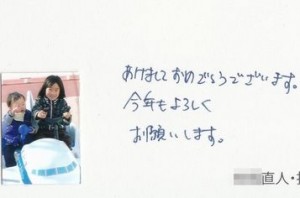 あけましておめでとうございます。
今年もよろしく
お願いします。
直人・